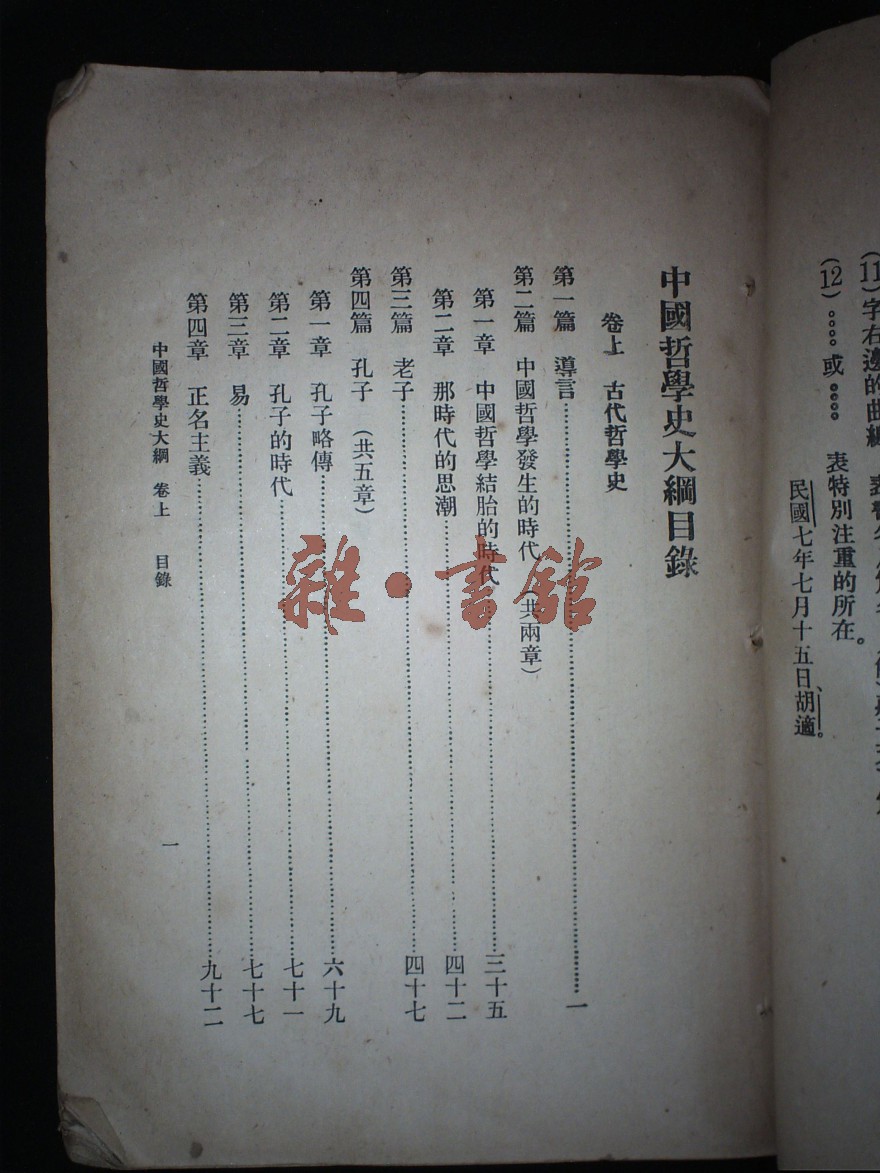 (11)字右邊的曲線
(12)。。。。或。。。。 表特別注重的所在。
民國七年七月十五日、胡適。
中國哲學史大綱目錄
卷上 古代哲學史
第一篇 導言……一
第二篇 中國哲學發生的時代(共兩章)
第一章 中國哲學結胎的時代……三十五
第二章 那時代的思潮……四十二
第三篇 老子……四十七
第四篇 孔子(共五章)
第一章 孔子略傳……六十九
第二章 孔子的時代……七十一
第三章 易……七十七
第四章 正名主義……九十二
中國哲學史大綱 卷上 目錄 一
雜·書館